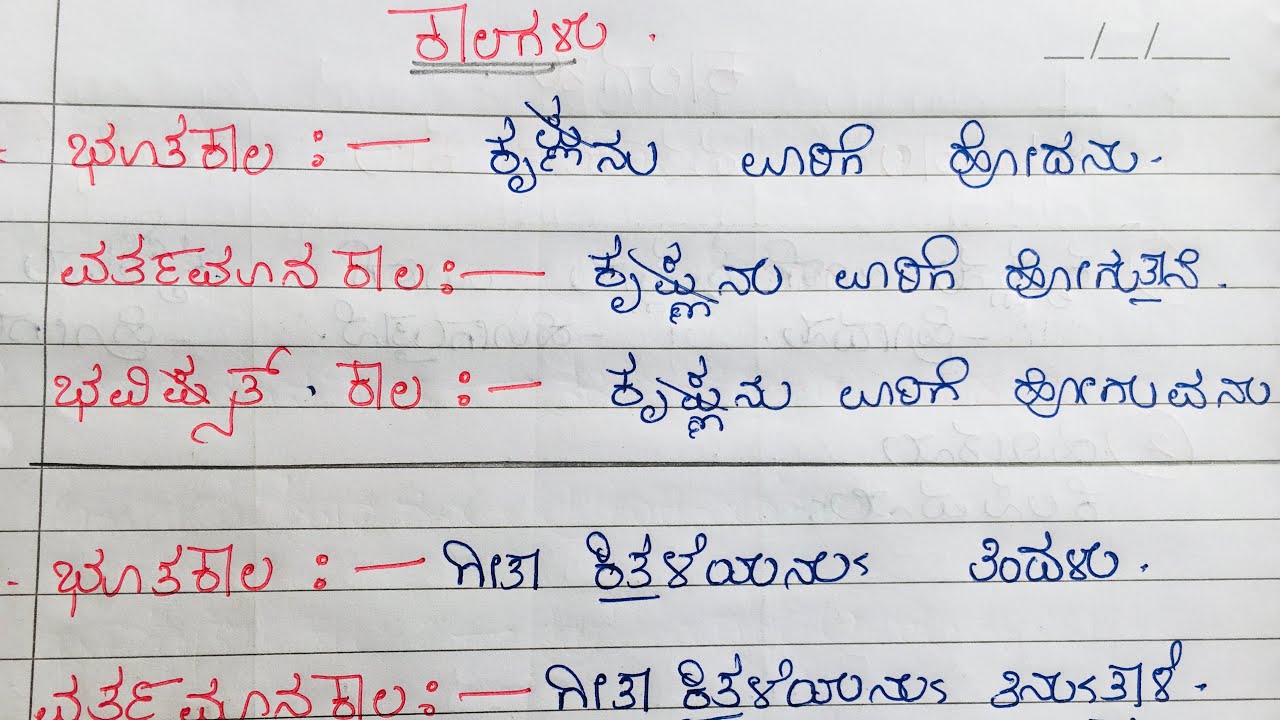 ಕಾಲಗಳು .
_/_/___
ಭೂತಕಾಲ :— ಕೃಷ್ಣನು ಊರಿಗೆ ಹೋದನು.
ವರ್ತಮಾನ ಕಾಲ :— ಕೃಷ್ಣನು ಊರಿಗೆ ಹೋಗುತ್ತಾನೆ.
ಭವಿಷ್ಯತ್ . ಕಾಲ :— ಕೃಷ್ಣನು ಊರಿಗೆ ಹೋಗುವನು
ಭೂತಕಾಲ :— ಗೀತಾ ಕಿತ್ತಳೆಯನ್ನು ತಿಂದಳು.
ವರ್ತಮಾನಕಾಲ :— ಗೀತಾ ಕಿತ್ತಳೆಯನ್ನು ತಿನ್ನುತ್ತಾಳೆ.